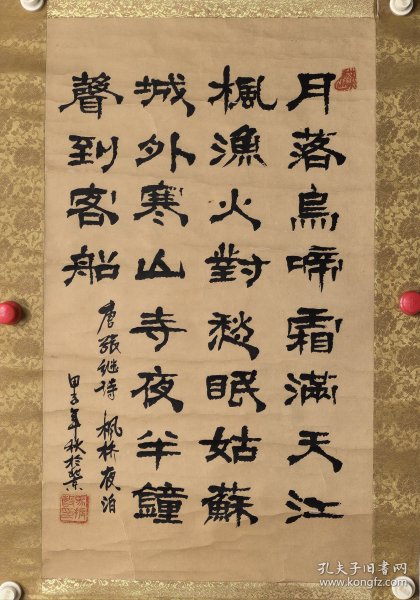 月落烏啼霜滿天江
楓漁火對愁眠姑蘇
城外寒山寺夜半鐘
聲到客船
唐張继诗 枫桥夜泊
甲子年秋於
孔夫子旧书网
www.kongfz.com